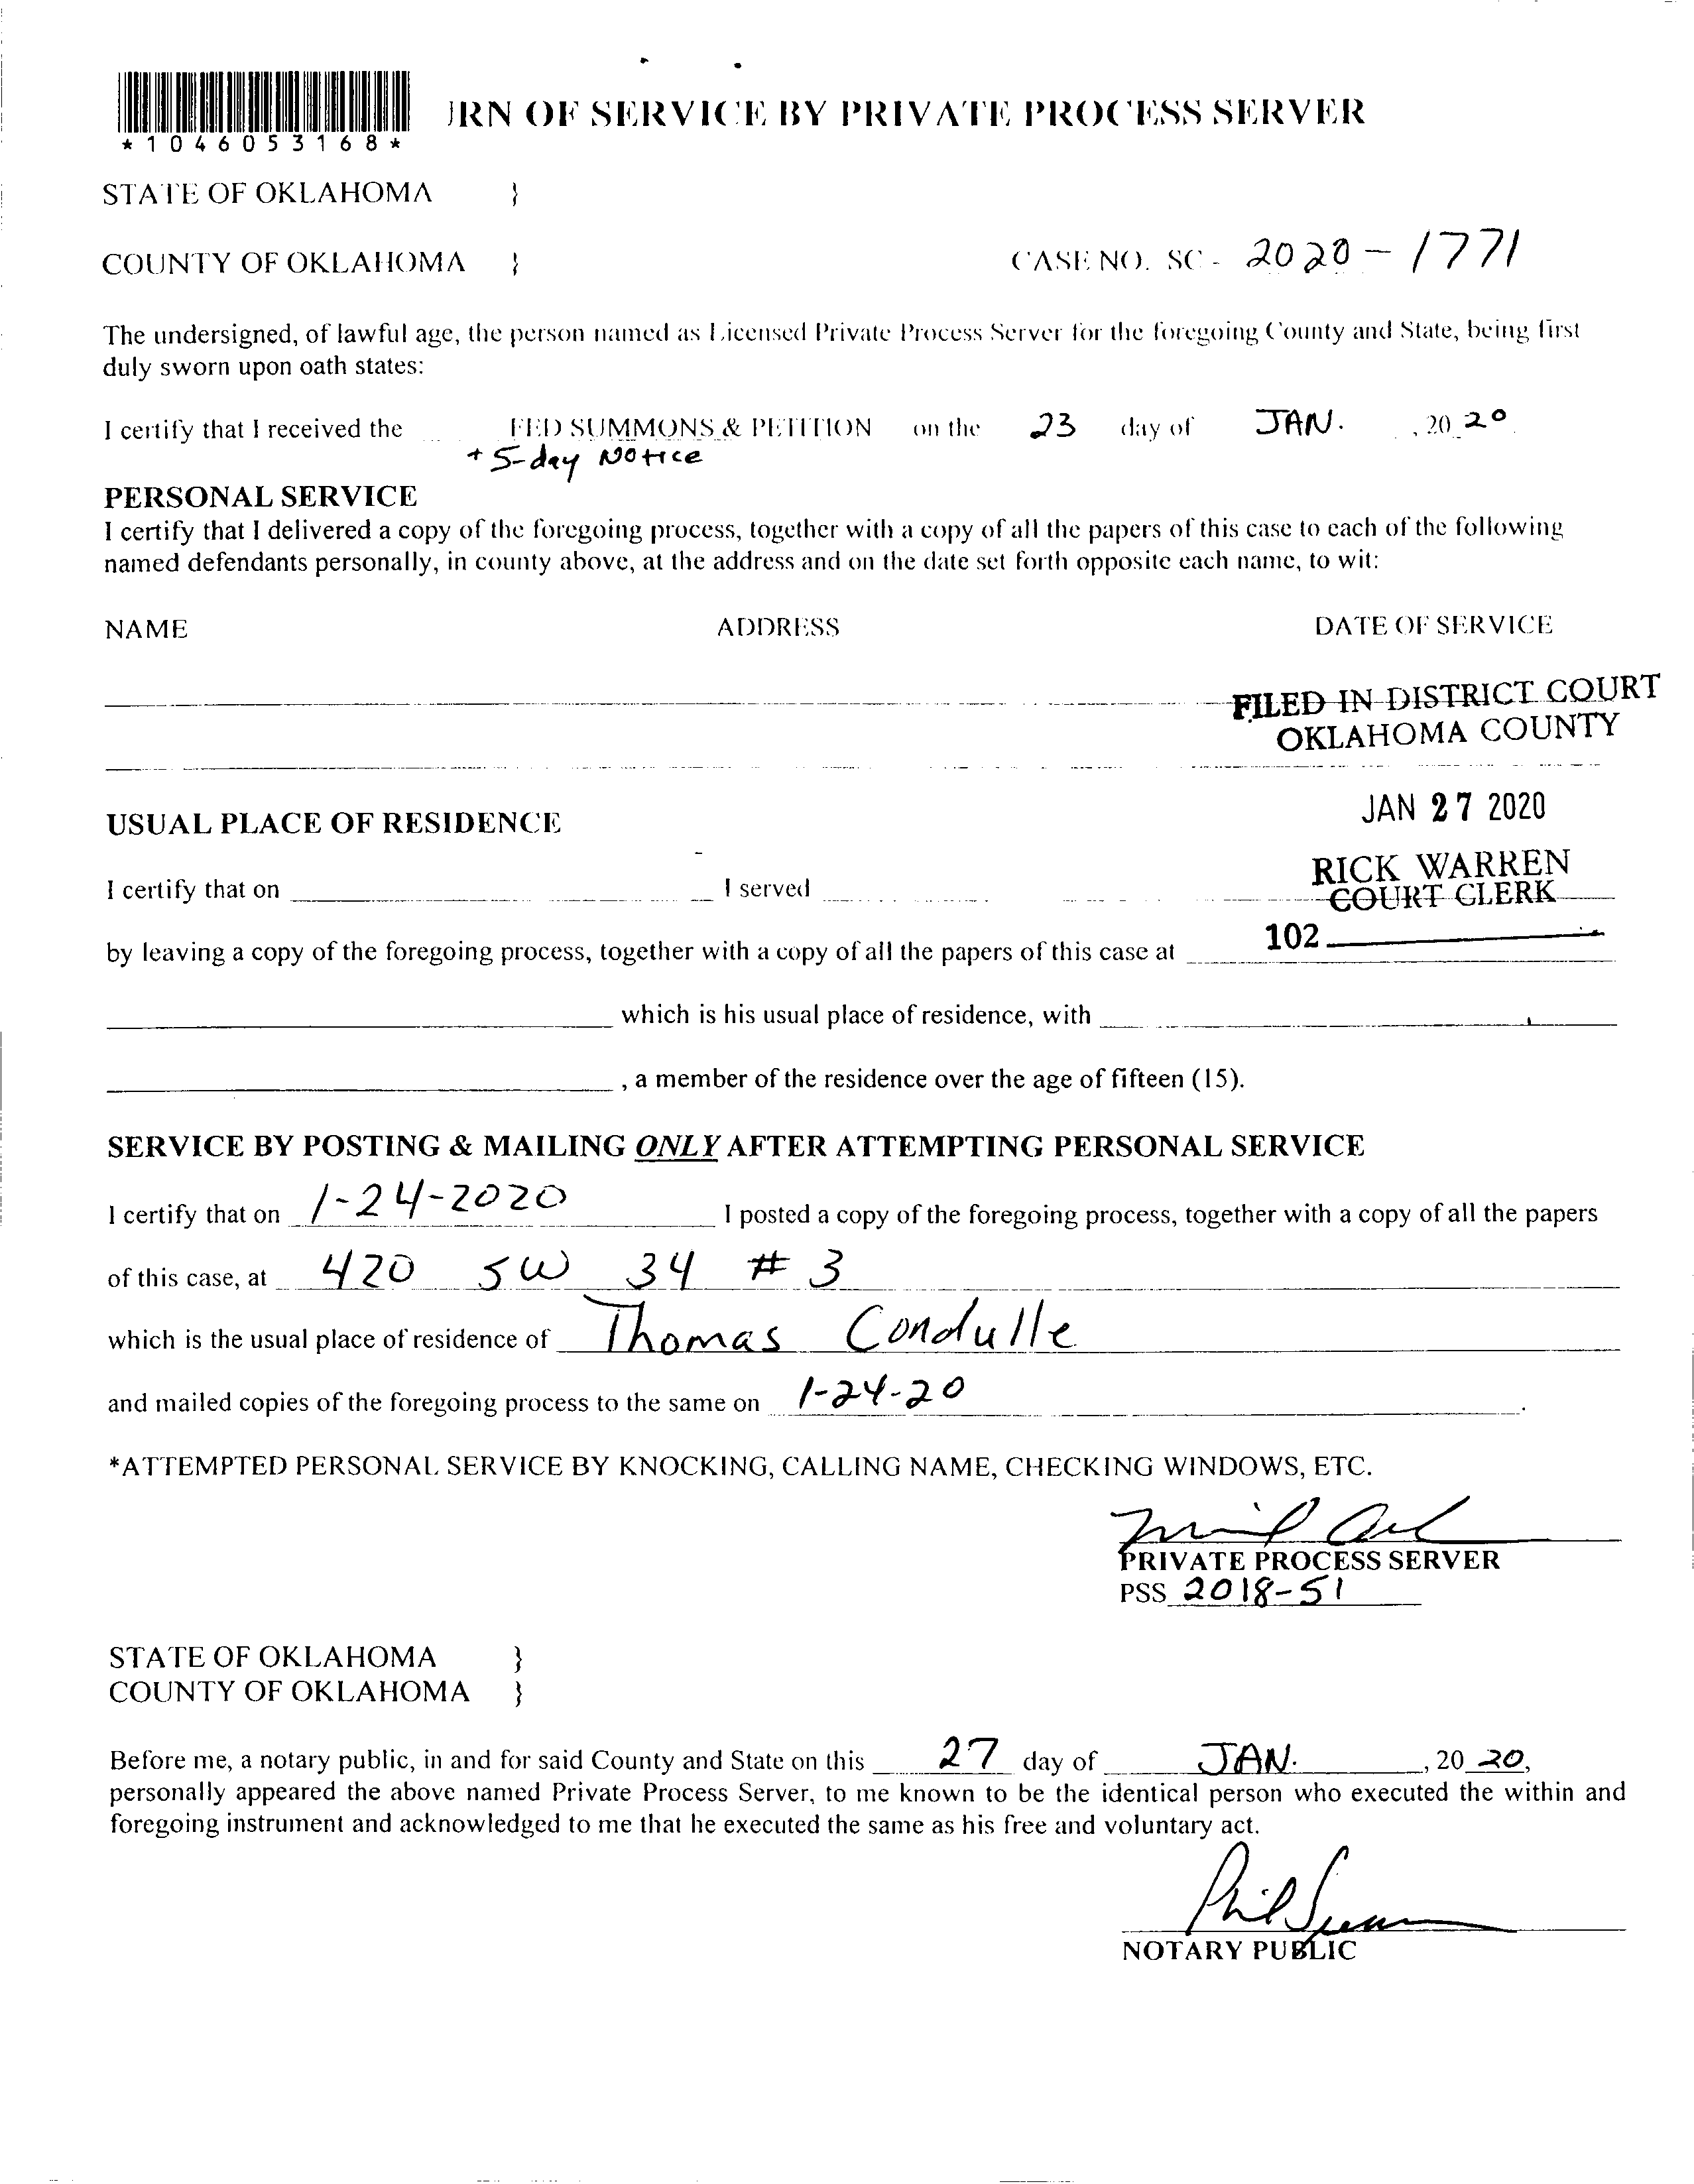 JRN OF SERVICE BY PRIVATE PROCESS SERVER
*1046053168*
STATE OF OKLAHOMA }
COUNTY OF OKLAHOMA } CASE NO. SC - 2020 - 1771
The undersigned, of lawful age, the person named as Licensed Private Process Server for the foregoing County and State, being first
duly sworn upon oath states:
I certify that I received the FED SUMMONS & PETITION on the 23 day of JAN. , 20 20
+ 5-day Notice
PERSONAL SERVICE
I certify that I delivered a copy of the foregoing process, together with a copy of all the papers of this case to each of the following
named defendants personally, in county above, at the address and on the date set forth opposite each name, to wit:
NAME ADDRESS DATE OF SERVICE
FILED IN DISTRICT COURT
OKLAHOMA COUNTY
JAN 27 2020
USUAL PLACE OF RESIDENCE
RICK WARREN
COURT CLERK
I certify that on I served
102
by leaving a copy of the foregoing process, together with a copy of all the papers of this case at
which is his usual place of residence, with
, a member of the residence over the age of fifteen (15).
SERVICE BY POSTING & MAILING ONLY AFTER ATTEMPTING PERSONAL SERVICE
I certify that on 1-24-2020 I posted a copy of the foregoing process, together with a copy of all the papers
of this case, at 420 SW 34 # 3
which is the usual place of residence of Thomas Condulle
and mailed copies of the foregoing process to the same on 1-24-20 .
*ATTEMPTED PERSONAL SERVICE BY KNOCKING, CALLING NAME, CHECKING WINDOWS, ETC.
PRIVATE PROCESS SERVER
PSS 2018-51
STATE OF OKLAHOMA }
COUNTY OF OKLAHOMA }
Before me, a notary public, in and for said County and State on this 27 day of JAN. , 20 20,
personally appeared the above named Private Process Server, to me known to be the identical person who executed the within and
foregoing instrument and acknowledged to me that he executed the same as his free and voluntary act.
Phil
NOTARY PUBLIC